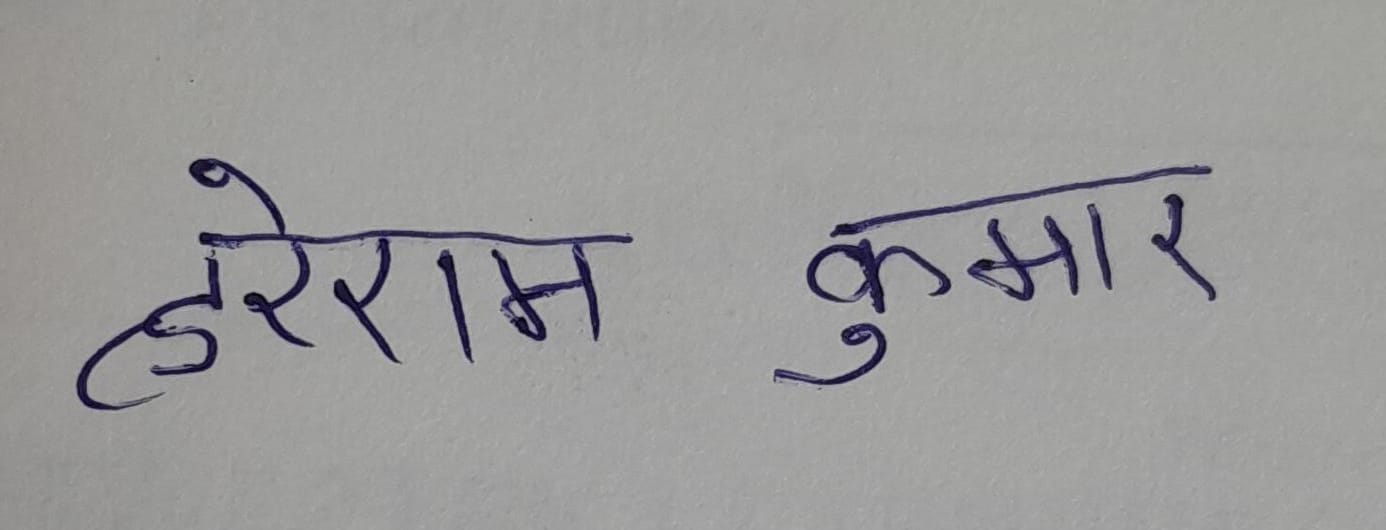 हरेराम कुमार